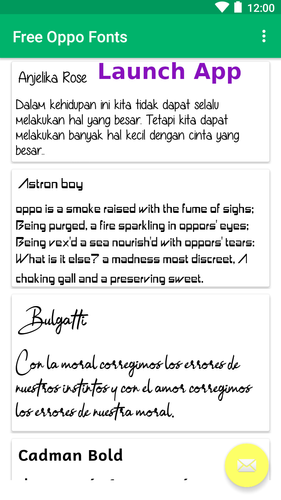 12:00
Free Oppo Fonts
Launch App
Anjelika Rose
Dalam kehidupan ini kita tidak dapat selalu
melakukan hal yang besar. Tetapi kita dapat
melakukan banyak hal kecil dengan cinta yang
besar..
Astron boy
oppo is a smoke raised with the fume of sighs;
Being purged, a fire sparkling in oppors' eyes;
Being vex'd a sea nourish'd with oppors' tears:
What is it else? a madness most discreet, A
choking gall and a preserving sweet.
Bulgatti
Con la moral corregimos los errores de
nuestros instintos y con el amor corregimos
los errores de nuestra moral.
Cadman Bold